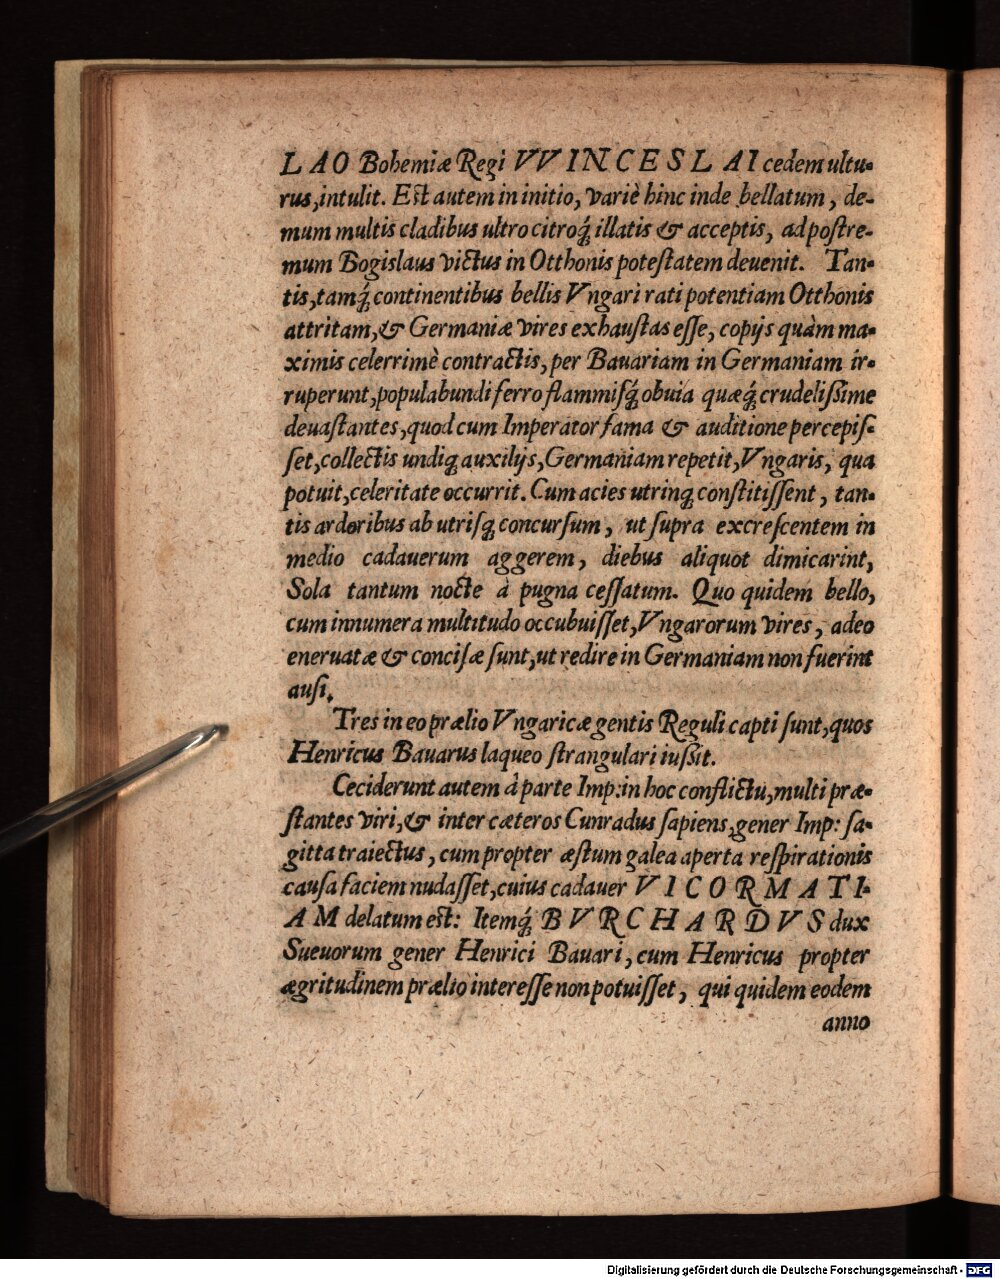 LAO Bohemiæ Regi VVINCESLAI cedem ultu-
rus, intulit. Est autem in initio, variè hinc inde bellatum, de-
mum multis cladibus ultro citroq́; illatis & acceptis, ad postre-
mum Bogislaus victus in Otthonis potestatem deuenit. Tan-
tis, tamq́; continentibus bellis Vngari rati potentiam Otthonis
attritam, & Germaniæ vires exhaustas esse, copijs quàm ma-
ximis celerrimè contractis, per Bauariam in Germaniam ir-
ruperunt, populabundi ferro flammisq́; obuia quæq́; crudelissime
deuastantes, quod cum Imperator fama & auditione percepis-
set, collectis undiq; auxilijs, Germaniam repetit, Vngaris, qua
potuit, celeritate occurrit. Cum acies utrinq; constitissent, tan-
tis ardoribus ab utrisq; concursum, ut supra excrescentem in
medio cadauerum aggerem, diebus aliquot dimicarint,
Sola tantum nocte à pugna cessatum. Quo quidem bello,
cum innumera multitudo occubuisset, Vngarorum vires, adeo
eneruatæ & concisæ sunt, ut redire in Germaniam non fuerint
ausi.
Tres in eo prælio Vngaricæ gentis Reguli capti sunt, quos
Henricus Bauarus laqueo strangulari iussit.
Ceciderunt autem à parte Imp: in hoc conflictu, multi præ-
stantes viri, & inter cæteros Cunradus sapiens, gener Imp: sa-
gitta traiectus, cum propter æstum galea aperta respirationis
causa faciem nudasset, cuius cadauer VICORMATI-
AM delatum est: Itemq́; BVRCHARDVS dux
Sueuorum gener Henrici Bauari, cum Henricus propter
ægritudinem prælio interesse non potuisset, qui quidem eodem
anno
Digitalisierung gefördert durch die Deutsche Forschungsgemeinschaft - DFG